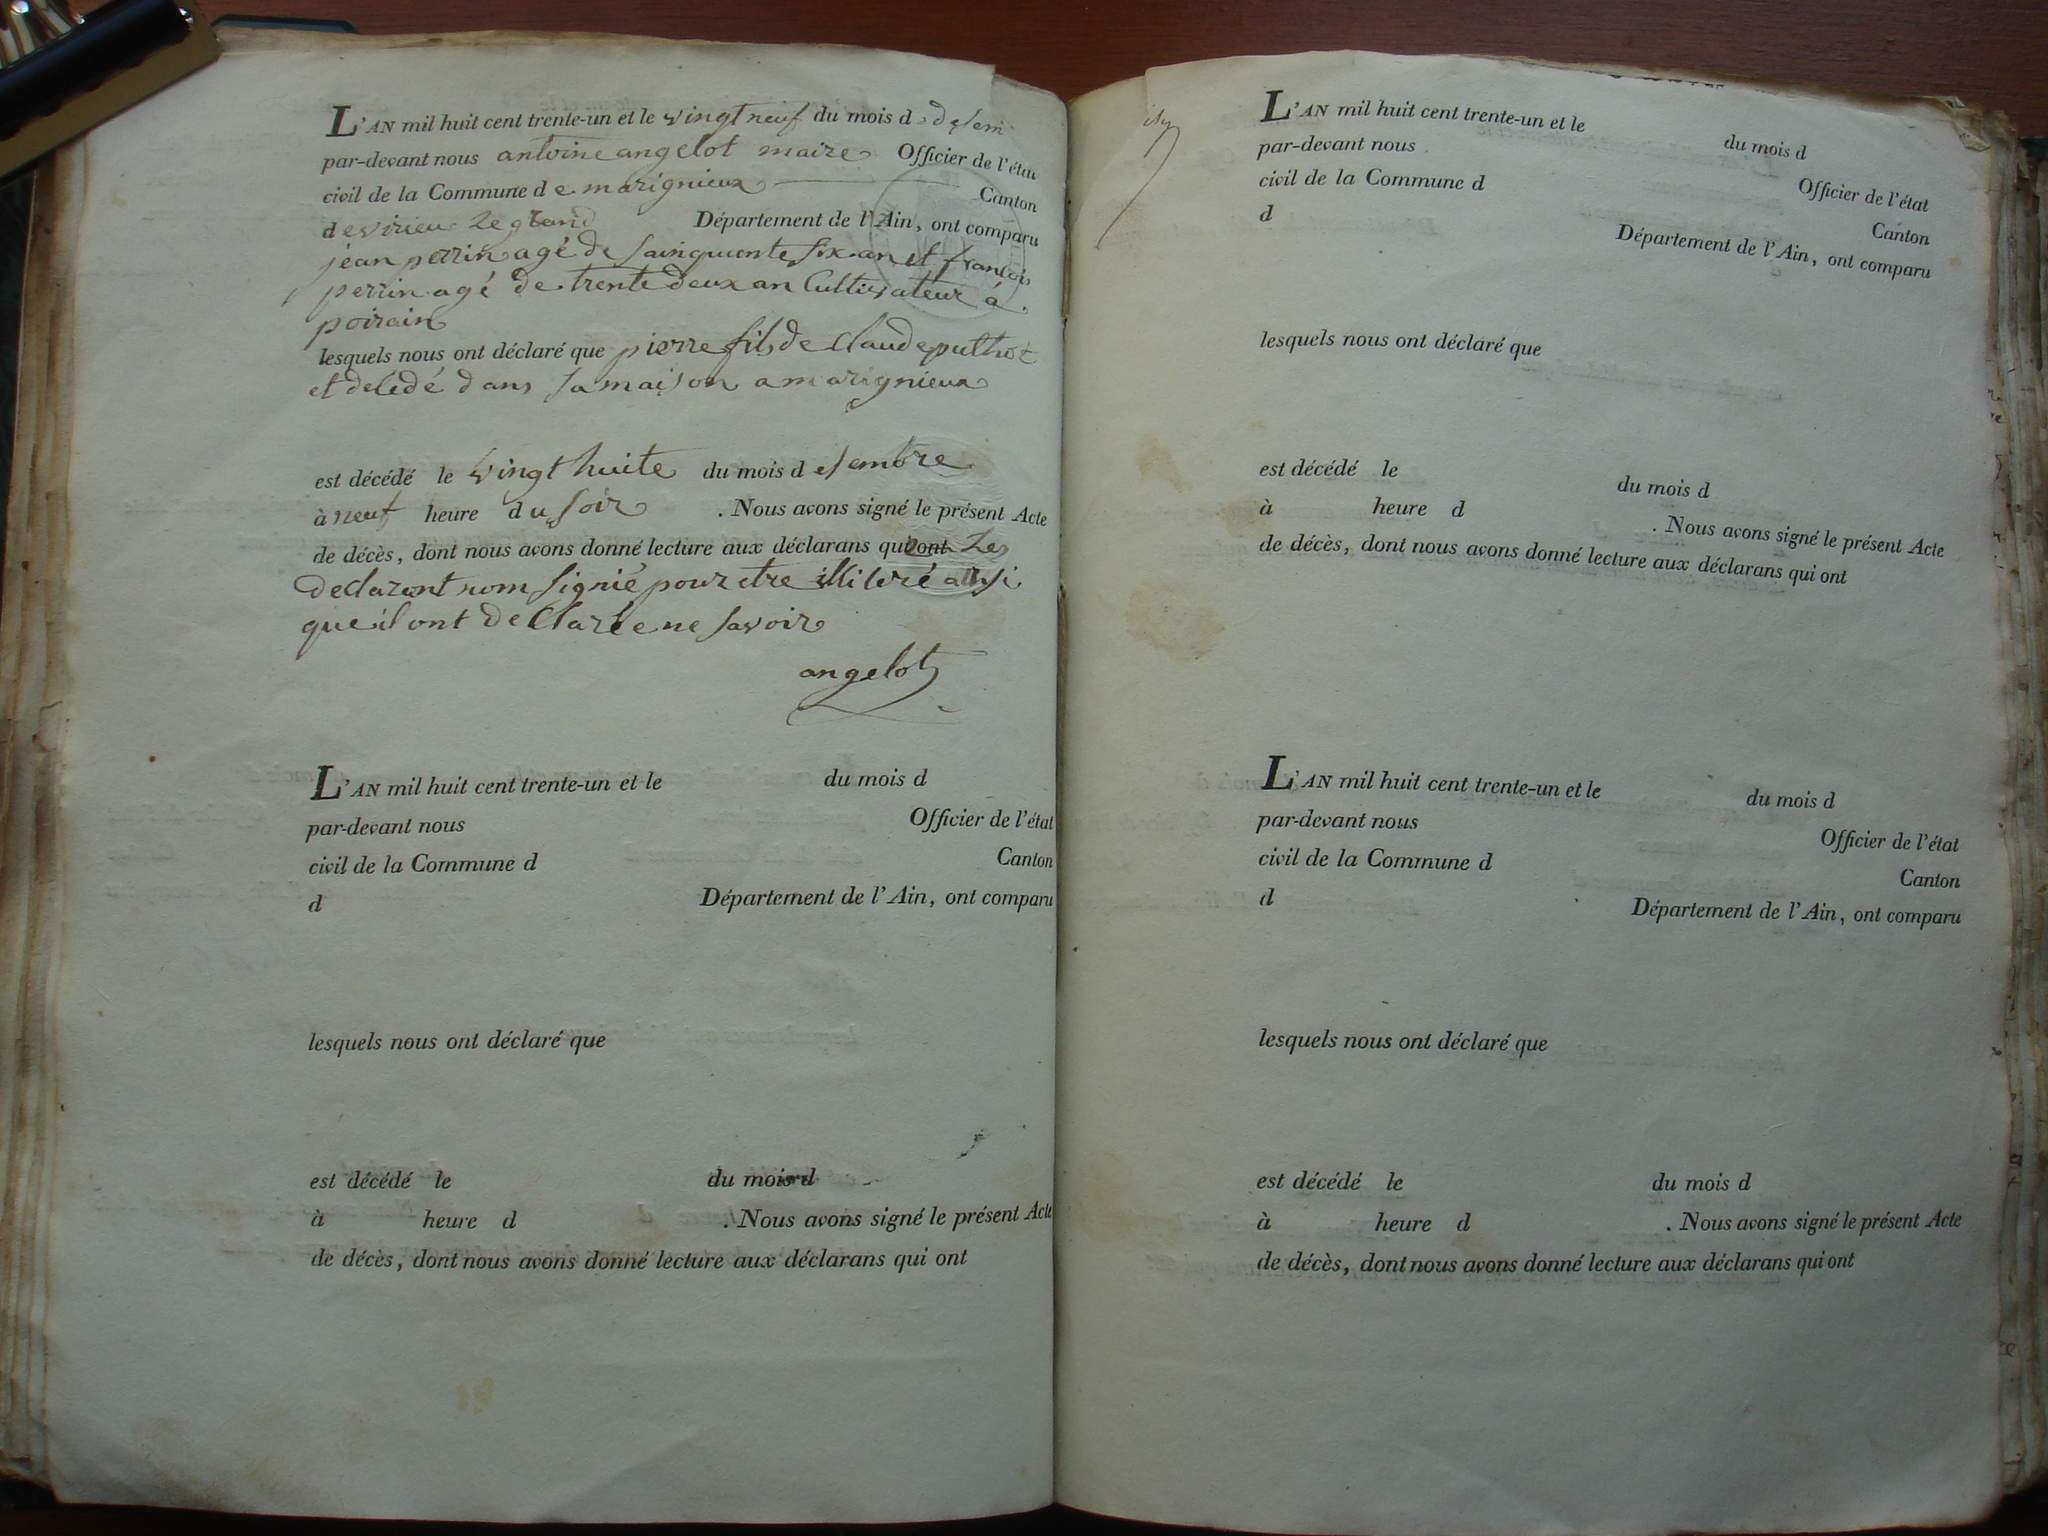 L'AN mil huit cent trente-un et le vingt neuf du mois d desem
par-devant nous antoine angelot maire Officier de l'état
civil de la Commune de marignieux Canton
de virieu Le grand Département de l'Ain, ont comparu
jean perrin agé de sainquente six an et francois
perrin agé de trente deux an Cultivateur á
poirain
lesquels nous ont déclaré que pierre fils de Claude puthot
et deCédé dans sa maison a marignieux
est décédé le vingt huite du mois desembre
à neuf heure du soir . Nous avons signé le présent Acte
de décès, dont nous avons donné lecture aux déclarans qui ont Les
declarent nom signié pour etre illiteré ainsi
que il ont deClarée ne savoir
angelot
L'AN mil huit cent trente-un et le du mois d
par-devant nous Officier de l'état
civil de la Commune d Canton
d Département de l'Ain, ont comparu
lesquels nous ont déclaré que
est décédé le du mois d
à heure d . Nous avons signé le présent Acte
de décès, dont nous avons donné lecture aux déclarans qui ont
L'AN mil huit cent trente-un et le du mois d
par-devant nous Officier de l'état
civil de la Commune d Canton
d Département de l'Ain, ont comparu
lesquels nous ont déclaré que
est décédé le du mois d
à heure d . Nous avons signé le présent Acte
de décès, dont nous avons donné lecture aux déclarans qui ont
L'AN mil huit cent trente-un et le du mois d
par-devant nous Officier de l'état
civil de la Commune d Canton
d Département de l'Ain, ont comparu
lesquels nous ont déclaré que
est décédé le du mois d
à heure d . Nous avons signé le présent Acte
de décès, dont nous avons donné lecture aux déclarans qui ont